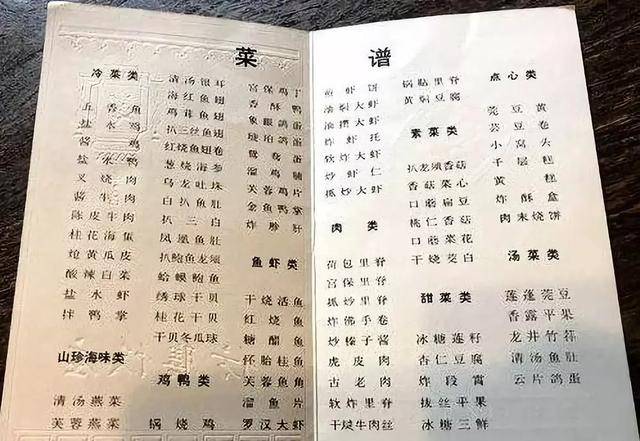 菜谱
冷菜类
五香鱼
盐水鸡
酱鸡
盐水鸭
叉烧肉
酱牛肉
陈皮牛肉
桂花海蜇
炝黄瓜皮
酸辣白菜
盐水虾
拌鸭掌
山珍海味类
清汤燕菜
芙蓉燕菜
清汤银耳
海红鱼翅
鸡茸鱼翅
扒三丝鱼翅
红烧鱼翅卷
葱烧海参
乌龙吐珠
白扒鱼肚
扒三白
凤凰鱼肚
扒鲍鱼龙须
蛤蟆鲍鱼
绣球干贝
桂花干贝
干贝冬瓜球
鸡鸭类
锅烧鸡
宫保鸡丁
香酥鸭
象眼鸽蛋
琥珀鸽蛋
鸳鸯蛋
溜鸡脯
芙蓉鸡片
金鱼鸭掌
炸胗肝
鱼虾类
干烧活鱼
红烧鱼
糖醋鱼
怀胎桂鱼
芙蓉鱼角
溜鱼片
罗汉大虾
煎虾饼
油焖大虾
油摆大虾
炸虾托
软炸大虾
炒虾仁
抓炒大虾
肉类
荷包里脊
宫保里脊
抓炒里脊
炸佛手卷
炒榛子酱
虎皮肉
古老肉
软炸里脊
干煸牛肉丝
锅贴里脊
黄焖豆腐
素菜类
扒龙须香菇
香菇菜心
口蘑扁豆
桃仁香菇
口蘑菜花
干烧茭白
甜菜类
冰糖莲籽
杏仁豆腐
炸段霄
拔丝平果
冰糖三鲜
点心类
莞豆黄
芸豆卷
小窝头
千层糕
黄糕
炸酥盒
肉末烧饼
汤菜类
莲蓬莞豆
香露平果
龙井竹荪
清汤鱼肚
云片鸽蛋